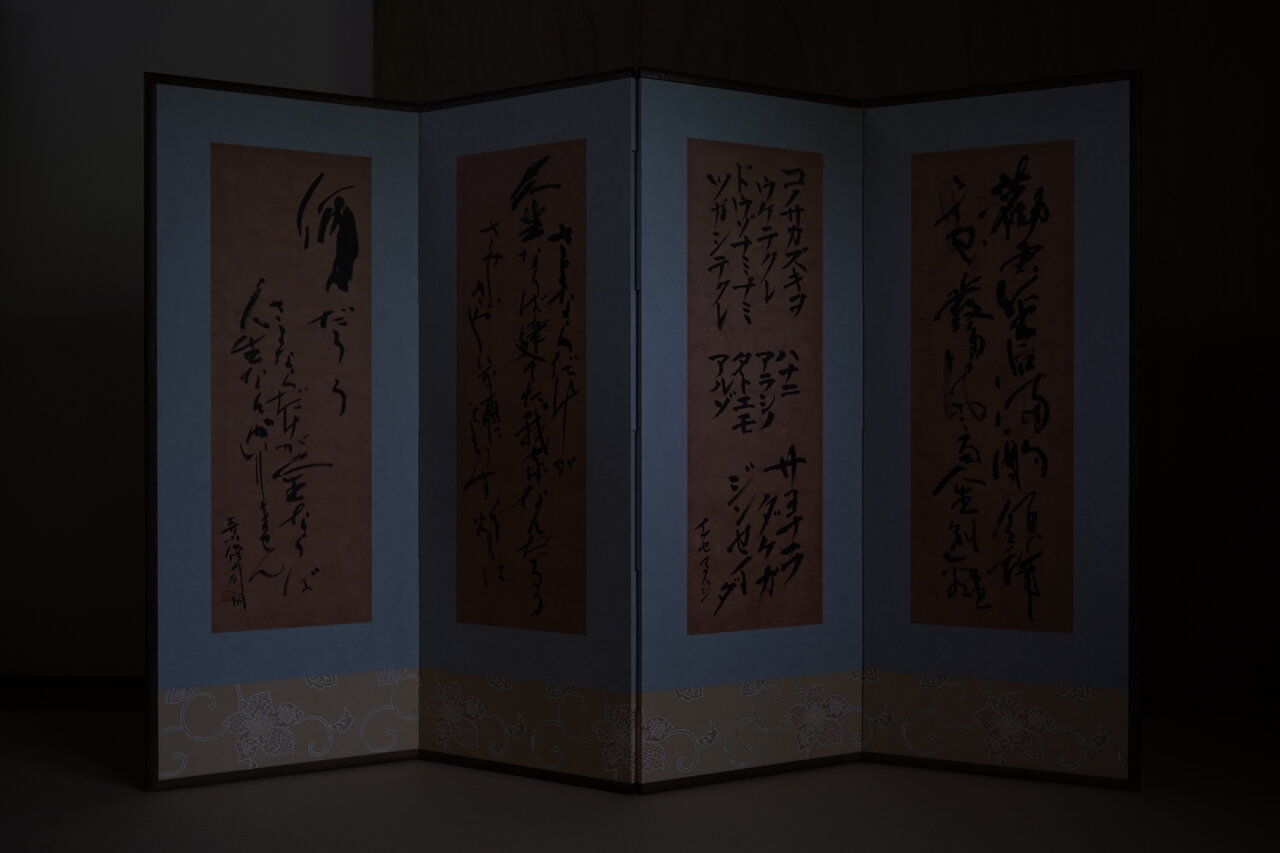 勧君金屈卮満酌不須辞
花發多風雨人生足別離
コノサカズキヲ
ウケテクレ
ドウゾナミナミ
ツガシテクレ
ハナニ
アラシノ
タトエモ
アルゾ
サヨナラ
ダケガ
ジンセイダ
さよならだけが
人生ならば建てた我が家なんだろう
さみしいさみしい平原に
ともす灯りは
何だろう
さよならだけが人生ならば
人生なんかいりません
寺山修司